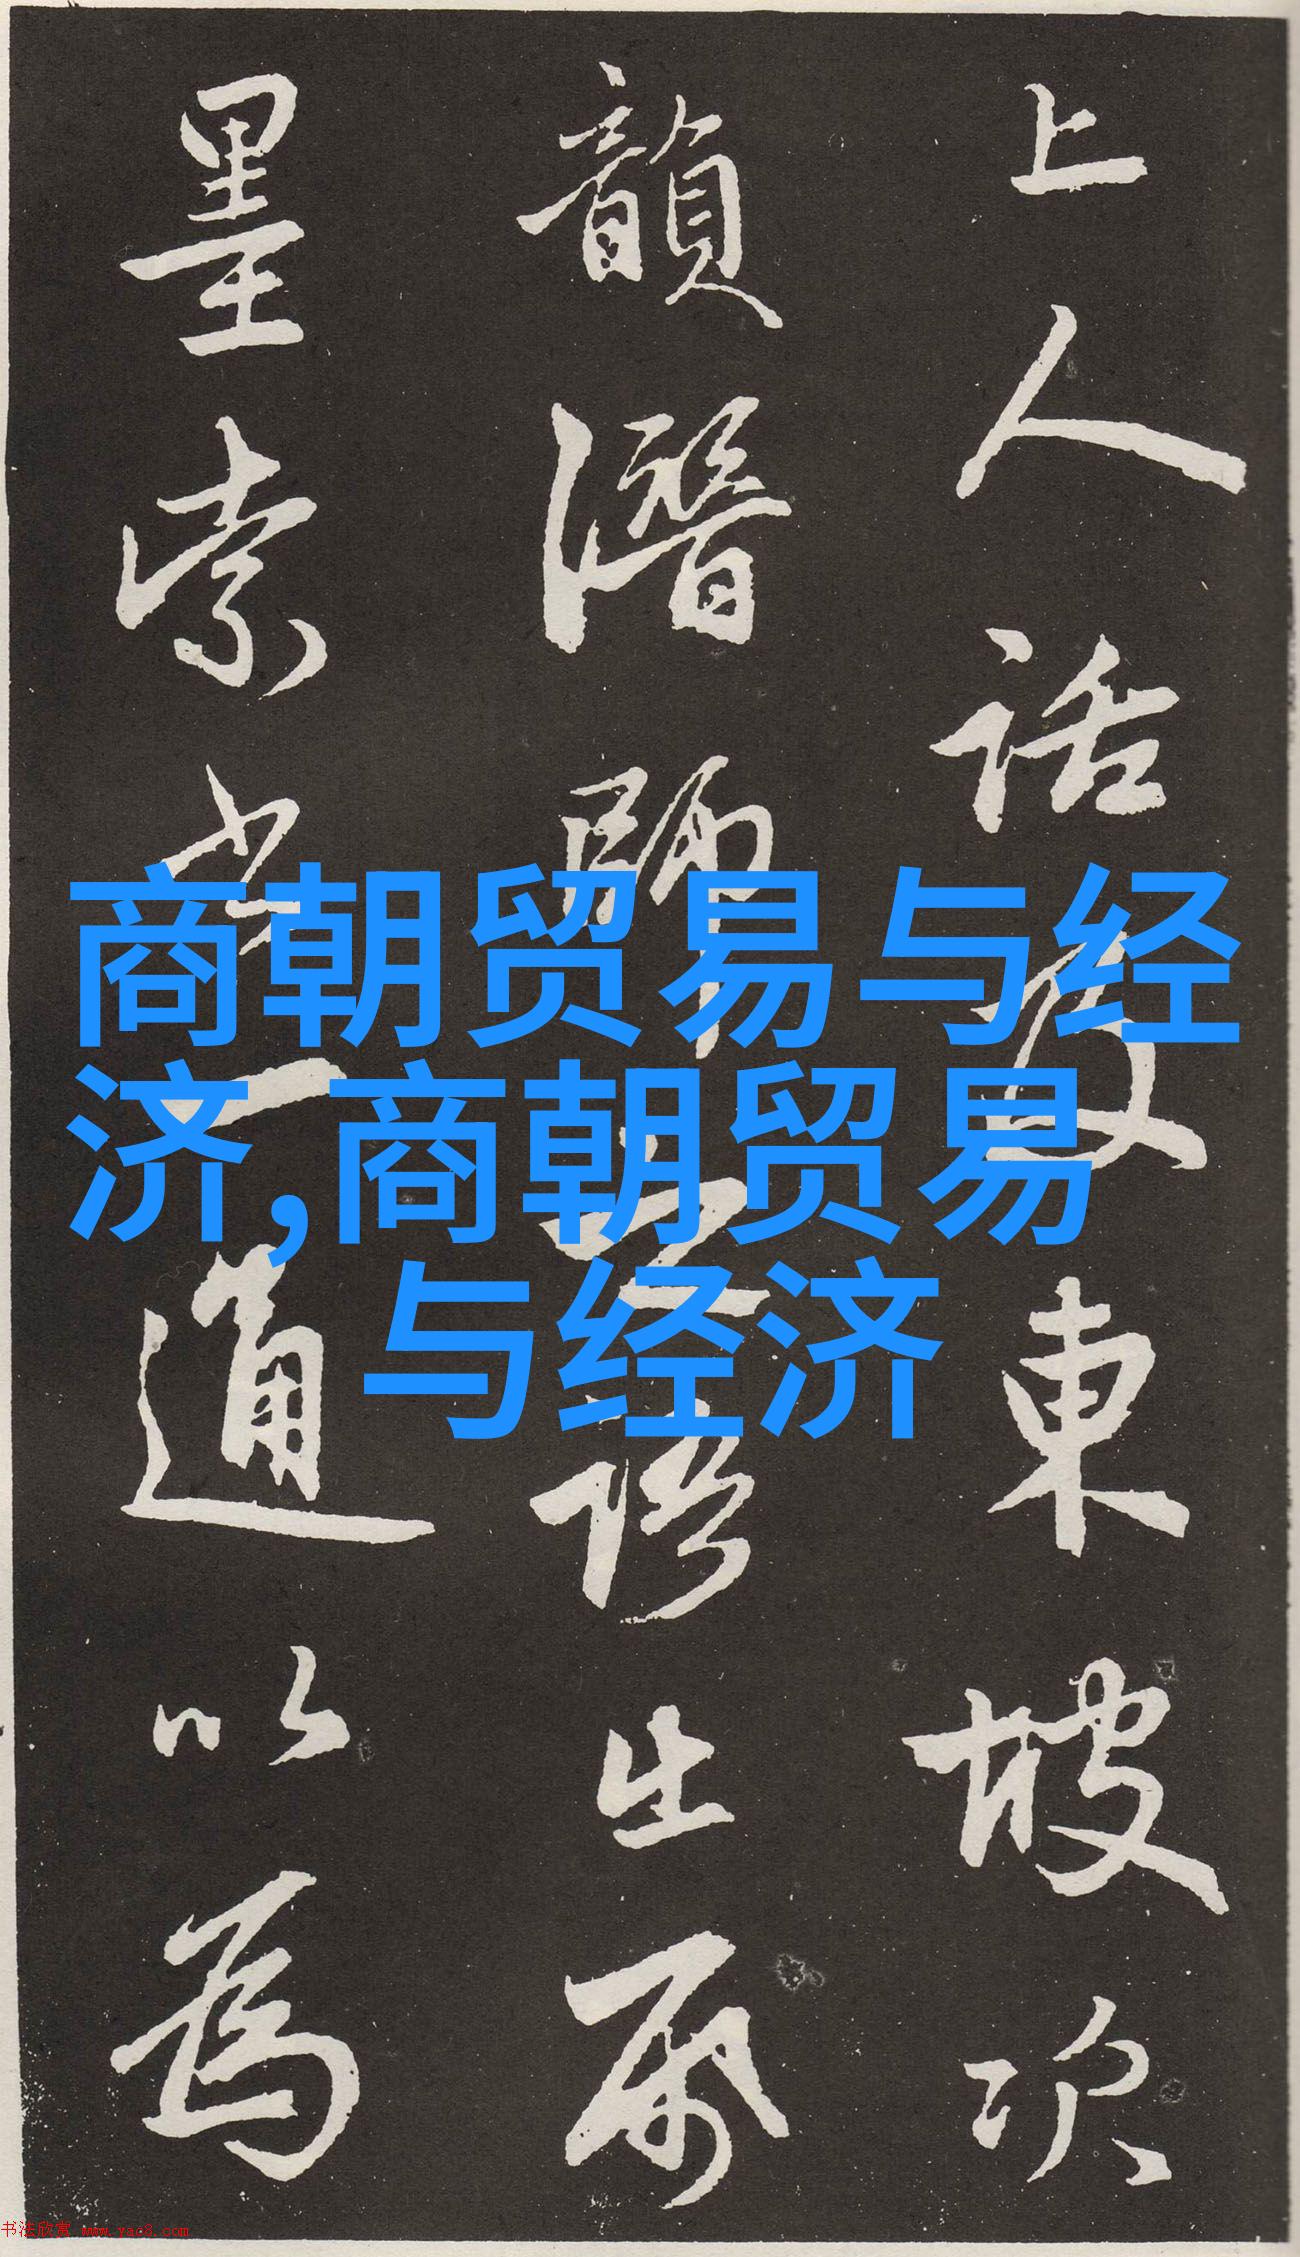 上人話
東坡次
韻潛師
語出所
墨索
道以為
商朝贸易与经
济,商朝贸易
与经济
书法欣赏 www.yac8.com